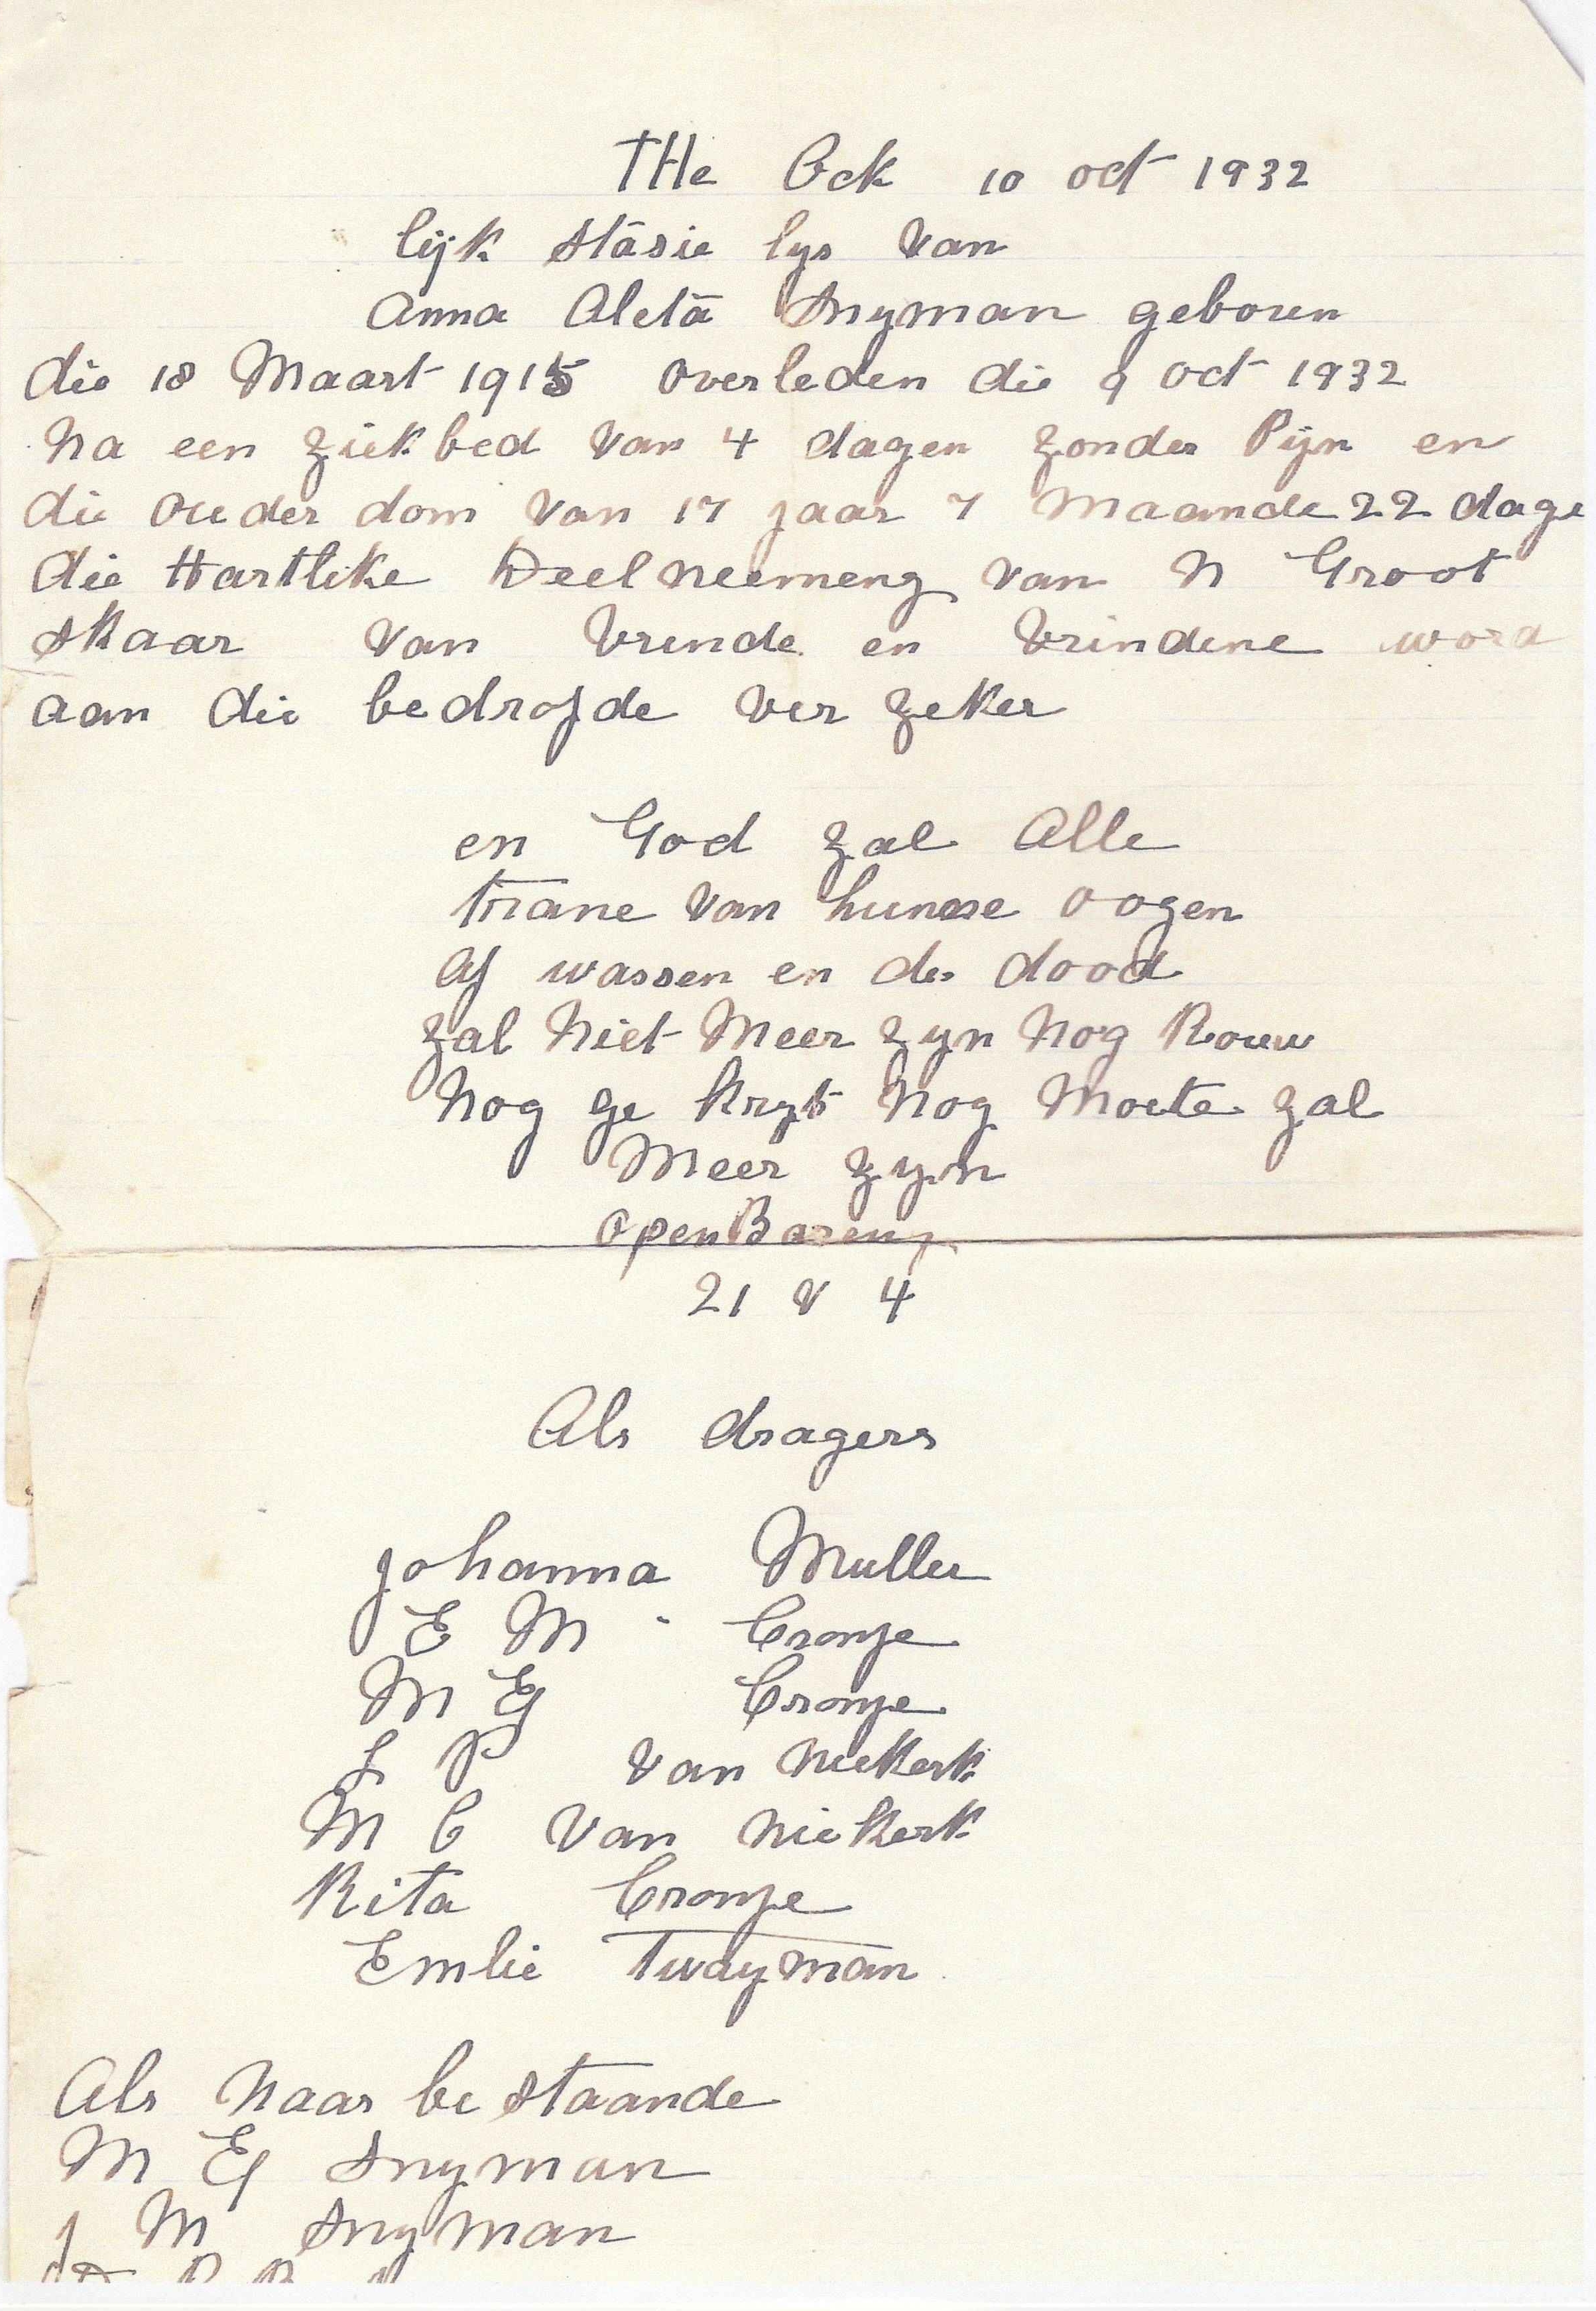 THe Ock 10 oct 1932
lijk stasie lys van
Anna Aleta Snyman geboren
die 18 Maart 1915 overleden die 9 oct 1932
Na een ziekbed van 4 dagen zonder Pijn en
die ouder dom van 17 jaar 7 Maande 22 dage
die Hartlike Deel neemeng van N Groot
skaar van Vrinde en Vrindine word
aan die bedrofde ver zeker
en God zal Alle
trane van hunne oogen
Af wassen en de dood
zal Niet Meer zyn Nog Rouw
Nog ge kryt Nog Moete zal
Meer zyn
OpenBareng
21 v 4
Als dragers
Johanna Muller
E M Cronje
M E Cronje
L P van Niekerk
M C Van Niekerk
Rita Cronje
Emlie Twayman
Als Naar be staande
M E Snyman
J M Snyman